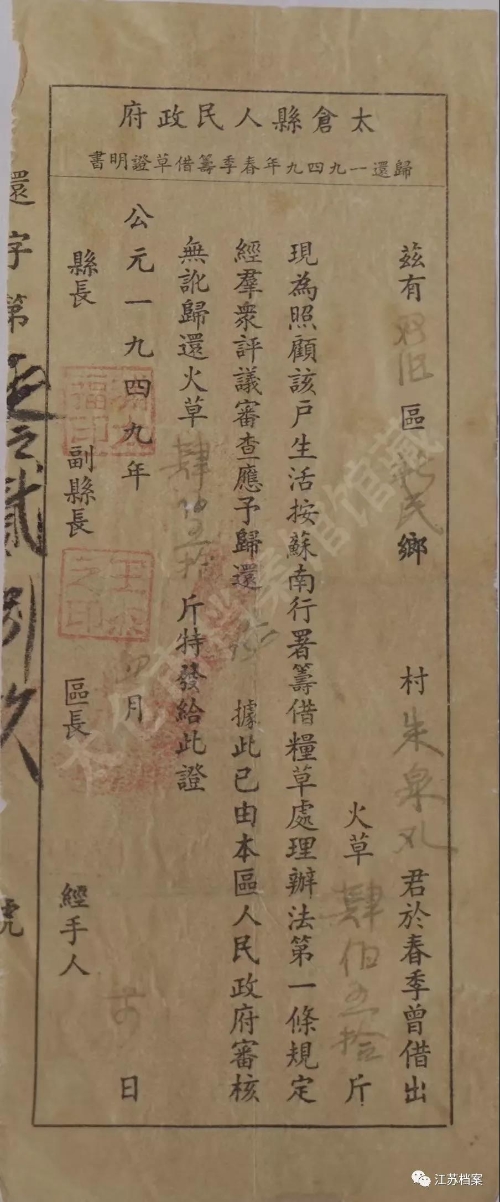 太倉縣人民政府
歸還一九四九年春季籌借草證明書
茲有 區 民鄉 村朱 君於春季曾借出
火草肆佰五拾斤
現為照顧該戶生活按蘇南行署籌借糧草處理辦法第一條規定
經羣衆評議審查應予歸還 據此已由本區人民政府審核
無訛歸還火草肆佰五拾斤特發給此證
公元一九四九年 月 日
縣長 副縣長 區長 經手人
還字第 號
太仓市档案馆馆藏
江苏档案